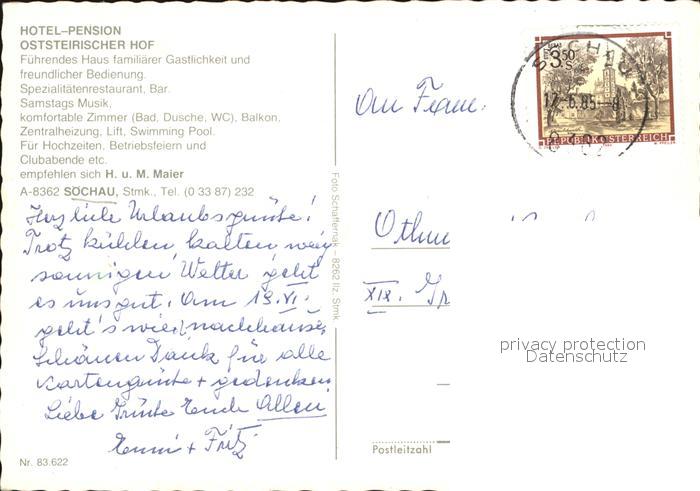 HOTEL–PENSION
OSTSTEIRISCHER HOF
Führendes Haus familiärer Gastlichkeit und
freundlicher Bedienung.
Spezialitätenrestaurant, Bar.
Samstags Musik,
komfortable Zimmer (Bad, Dusche, WC), Balkon,
Zentralheizung, Lift, Swimming Pool.
Für Hochzeiten, Betriebsfeiern und
Clubabende etc.
empfehlen sich H. u. M. Maier
A-8362 SÖCHAU, Stmk., Tel. (0 33 87) 232
Herzliche Urlaubsgrüsse!
Trotz kühlen kalten wenig
sonnigen Wetter geht
es uns gut. Am 18.VI.
geht's wied. nachhause,
Schönen Dank für alle
Kartengrüsse + gedenken
Liebe Grüsse Euch Allen
+ Fritz
Nr. 83.622
Foto Schaffernak – 8262 Ilz, Stmk.
3.50
S
17.-6.85--8
REPUBLIK ÖSTERREICH
An Fam.
Othm
XIX. Gr
privacy protection
Datenschutz
Postleitzahl